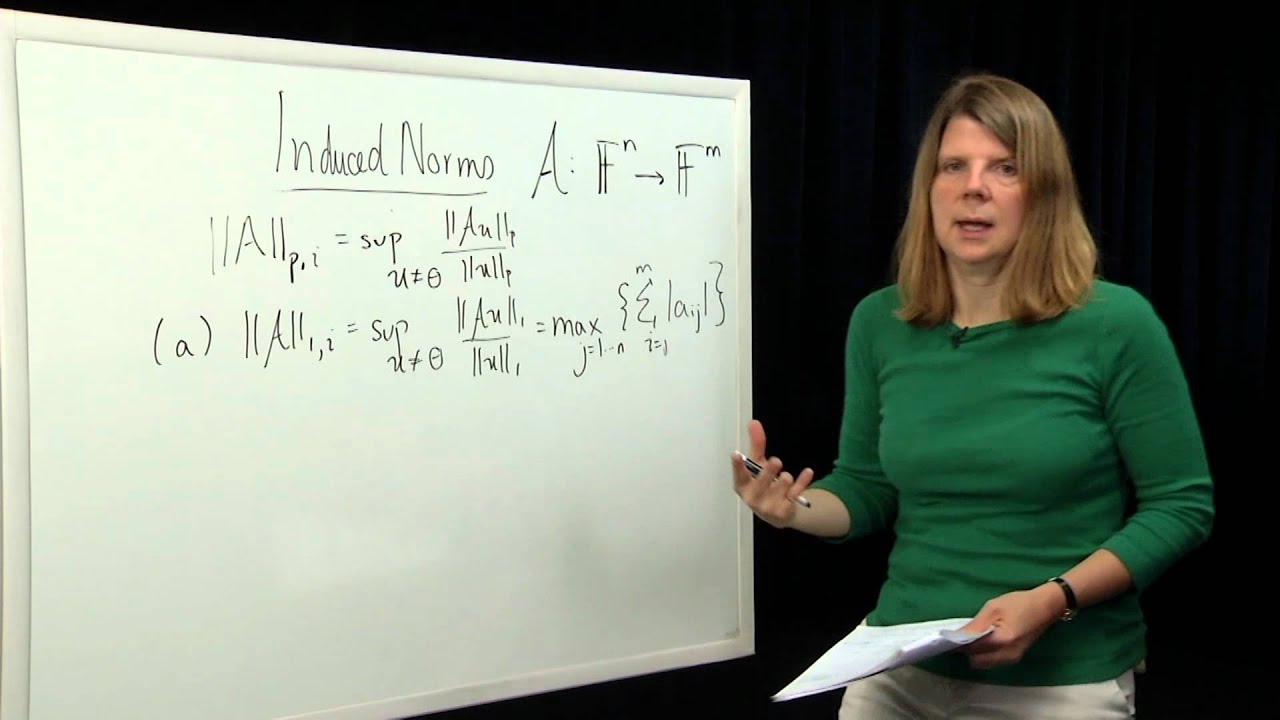 Induced Norms A: 𝔽ⁿ → 𝔽ᵐ
||A||_{p,i} = sup_{u≠θ} ||Au||_p / ||u||_p
(a) ||A||_{1,i} = sup_{u≠θ} ||Au||_1 / ||u||_1 = max_{j=1…n} {∑_{i=1}^{m} |a_{ij}|}